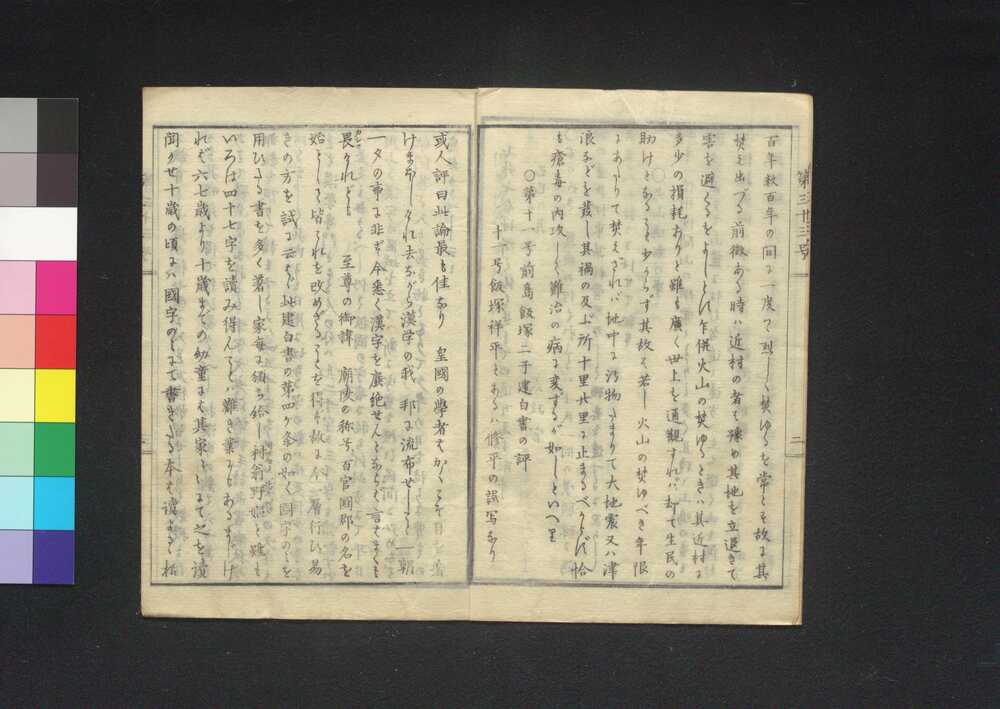 第三十三号
二
百年数百年の間に一度つゝ烈しく焚ゆるを常とす故に其
焚え出づる前徴ある時ハ近村の者も豫め其地を立退きて
害を避くるをよしとす乍併火山の焚ゆるときハ其近村に
多少の損耗ありと雖も廣く世上を通観すれハ却て生民の
助けとなること少からず其故ハ若し火山の焚ゆべき年限
にあたりて焚えざれハ地中に汚物たまりて大地震又ハ津
浪などを發し其禍の及ぶ所十里廿里に止まるべからず恰
も瘡毒の内攻して難治の病に変ずるが如しといへり
〇第十一号前島飯塚二子建白書の評
十一号飯塚祥平とあるハ修平の誤写なり
或人評曰此論最も佳なり 皇國の學者もかくこそ有
けまほしけれ去ながら漢学の我 邦に流布せしこと一朝
一夕の事に非ず今悉く漢字を廃絶せんとならバ言まくも
畏けれども 至尊の御諱 廟陵の称号、百官國郡の名を
始として皆これを改めざることを得ず故に今一層行ひ易
きの方を試に云はゞ此建白書の第四ヶ条の如く国字のみを
用ひたる書を多く著し家毎に頒ち給ハし村翁野媼と雖も
いろは四十七字を讀み得んことハ難き業にもあるまじけ
れバ六七歳より十歳までの幼童にも其家々にて之を讀
聞かせ十歳の頃にハ國字のミにて書きたる本を讀まるゝ栢